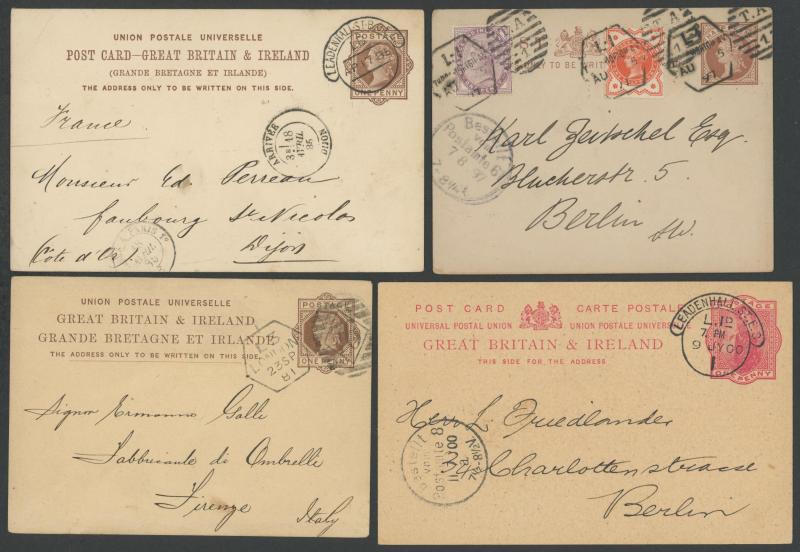 UNION POSTALE UNIVERSELLE
POST CARD—GREAT BRITAIN & IRELAND
(GRANDE BRETAGNE ET IRLANDE)
THE ADDRESS ONLY TO BE WRITTEN ON THIS SIDE.
POSTAGE
ONE PENNY
LEADENHALL ST.B.O.
AP 17
France
ARRIVÉE DIJON
3E / 18
AVRIL
Monsieur Ed. Perreau
faubourg St Nicolas
(Côte d'Or) Dijon
PARIS
TO BE WRITTEN
T.A.
AU
97
Bestellt
Postamte 6
7 8 97
Karl Zeitschel Esq.
Blucherstr. 5.
Berlin
SW.
UNION POSTALE UNIVERSELLE
GREAT BRITAIN & IRELAND
GRANDE BRETAGNE ET IRLANDE
THE ADDRESS ONLY TO BE WRITTEN ON THIS SIDE.
POSTAGE
ONE PENNY
23 SP
81
Signor Ermanno Galli
Fabbricante di Ombrelli
Firenze
Italy
POST CARD CARTE POSTALE
UNIVERSAL POSTAL UNION UNION POSTALE UNIVERSELLE
GREAT BRITAIN & IRELAND
THIS SIDE FOR THE ADDRESS
ONE PENNY
LEADENHALL ST. E.
7 PM
9 JY 00
1
Herrn L. Friedlander
Charlottenstrasse
Berlin
Bestellt
vom
Postamte 8